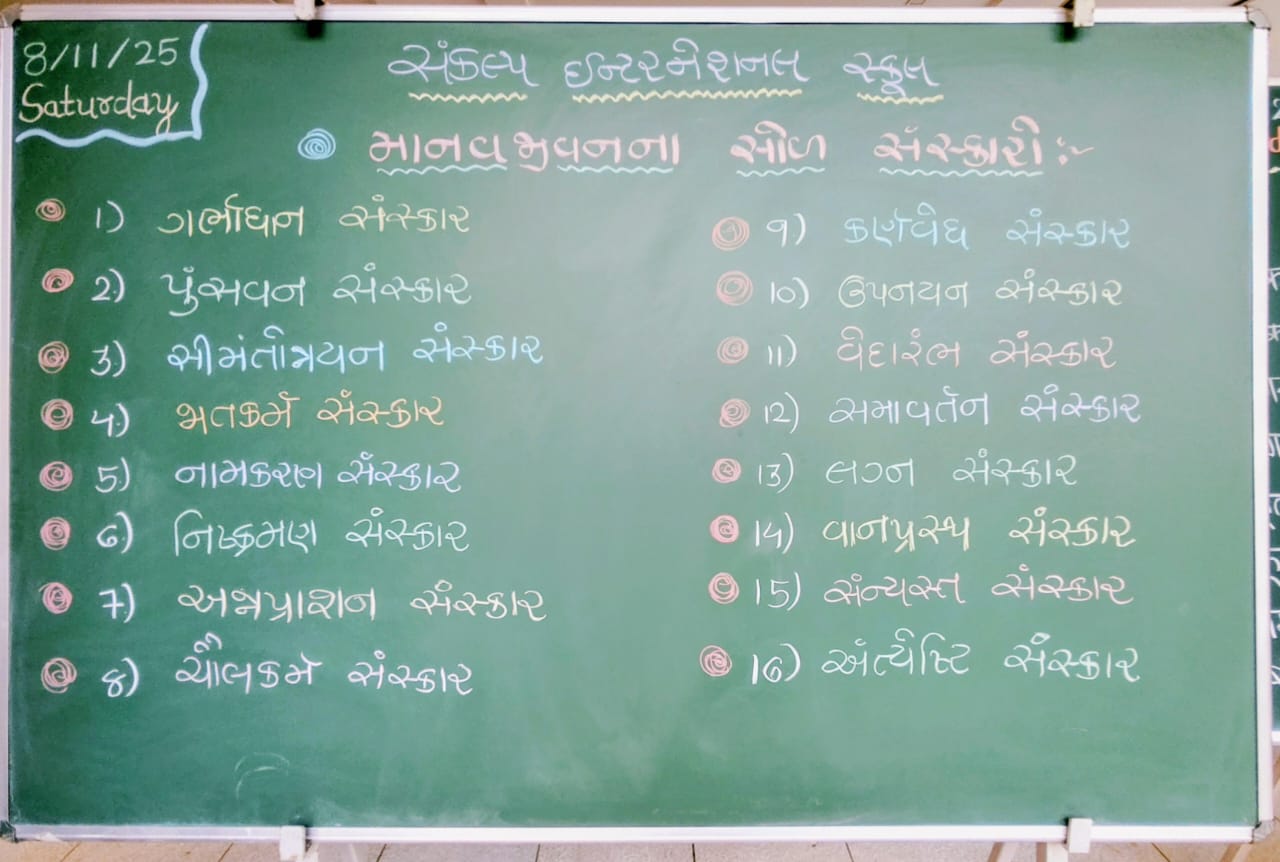 8/11/25
Saturday
સંકલ્પ ઇન્ટરનેશનલ સ્કૂલ
માનવજીવનના સોળ સંસ્કારો :-
1) ગર્ભાધાન સંસ્કાર
2) પુંસવન સંસ્કાર
3) સીમંતોન્નયન સંસ્કાર
4) જાતકર્મ સંસ્કાર
5) નામકરણ સંસ્કાર
6) નિષ્ક્રમણ સંસ્કાર
7) અન્નપ્રાશન સંસ્કાર
8) ચૌલકર્મ સંસ્કાર
9) કર્ણવેધ સંસ્કાર
10) ઉપનયન સંસ્કાર
11) વેદારંભ સંસ્કાર
12) સમાવર્તન સંસ્કાર
13) લગ્ન સંસ્કાર
14) વાનપ્રસ્થ સંસ્કાર
15) સંન્યસ્ત સંસ્કાર
16) અંત્યેષ્ટિ સંસ્કાર